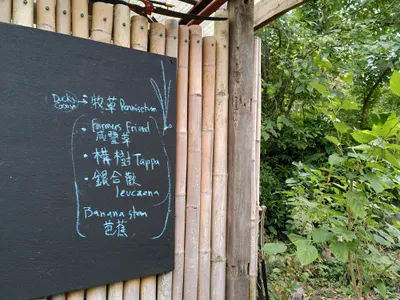 牧草 Pennisetum
• Farmers Friend
咸豐草
• 構樹 Tappa
• 銀合歡
leucaena
Banana stem
芭蕉